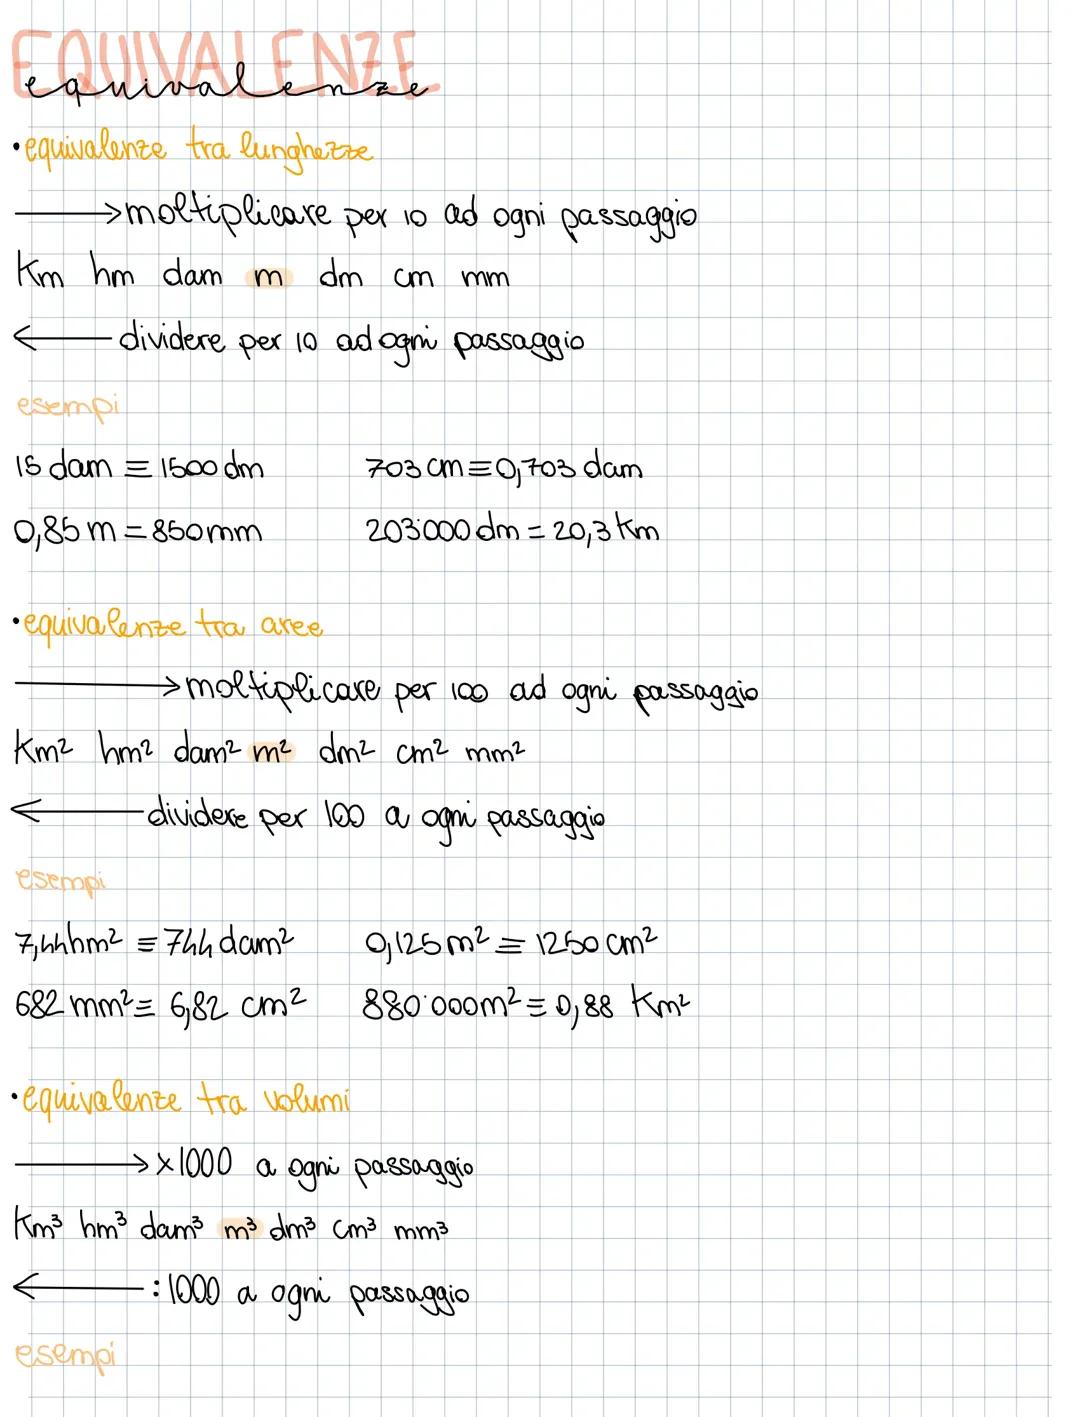 EQUIVALENZE
equivalenze
•equivalenze tra lunghezze
→moltiplicare per 10 ad ogni passaggio
Km hm dam m dm cm mm
← dividere per 10 ad ogni passaggio
esempi
15 dam ≡ 1500 dm 703 cm ≡ 0,703 dam
0,85 m = 850 mm 203˙000 dm = 20,3 Km
•equivalenze tra aree
→moltiplicare per 100 ad ogni passaggio
Km² hm² dam² m² dm² cm² mm²
← dividere per 100 a ogni passaggio
esempi
7,44 hm² ≡ 744 dam² 0,125 m² ≡ 1250 cm²
682 mm² ≡ 6,82 cm² 880˙000 m² ≡ 0,88 Km²
•equivalenze tra volumi
→ ×1000 a ogni passaggio
Km³ hm³ dam³ m³ dm³ cm³ mm³
← :1000 a ogni passaggio
esempi